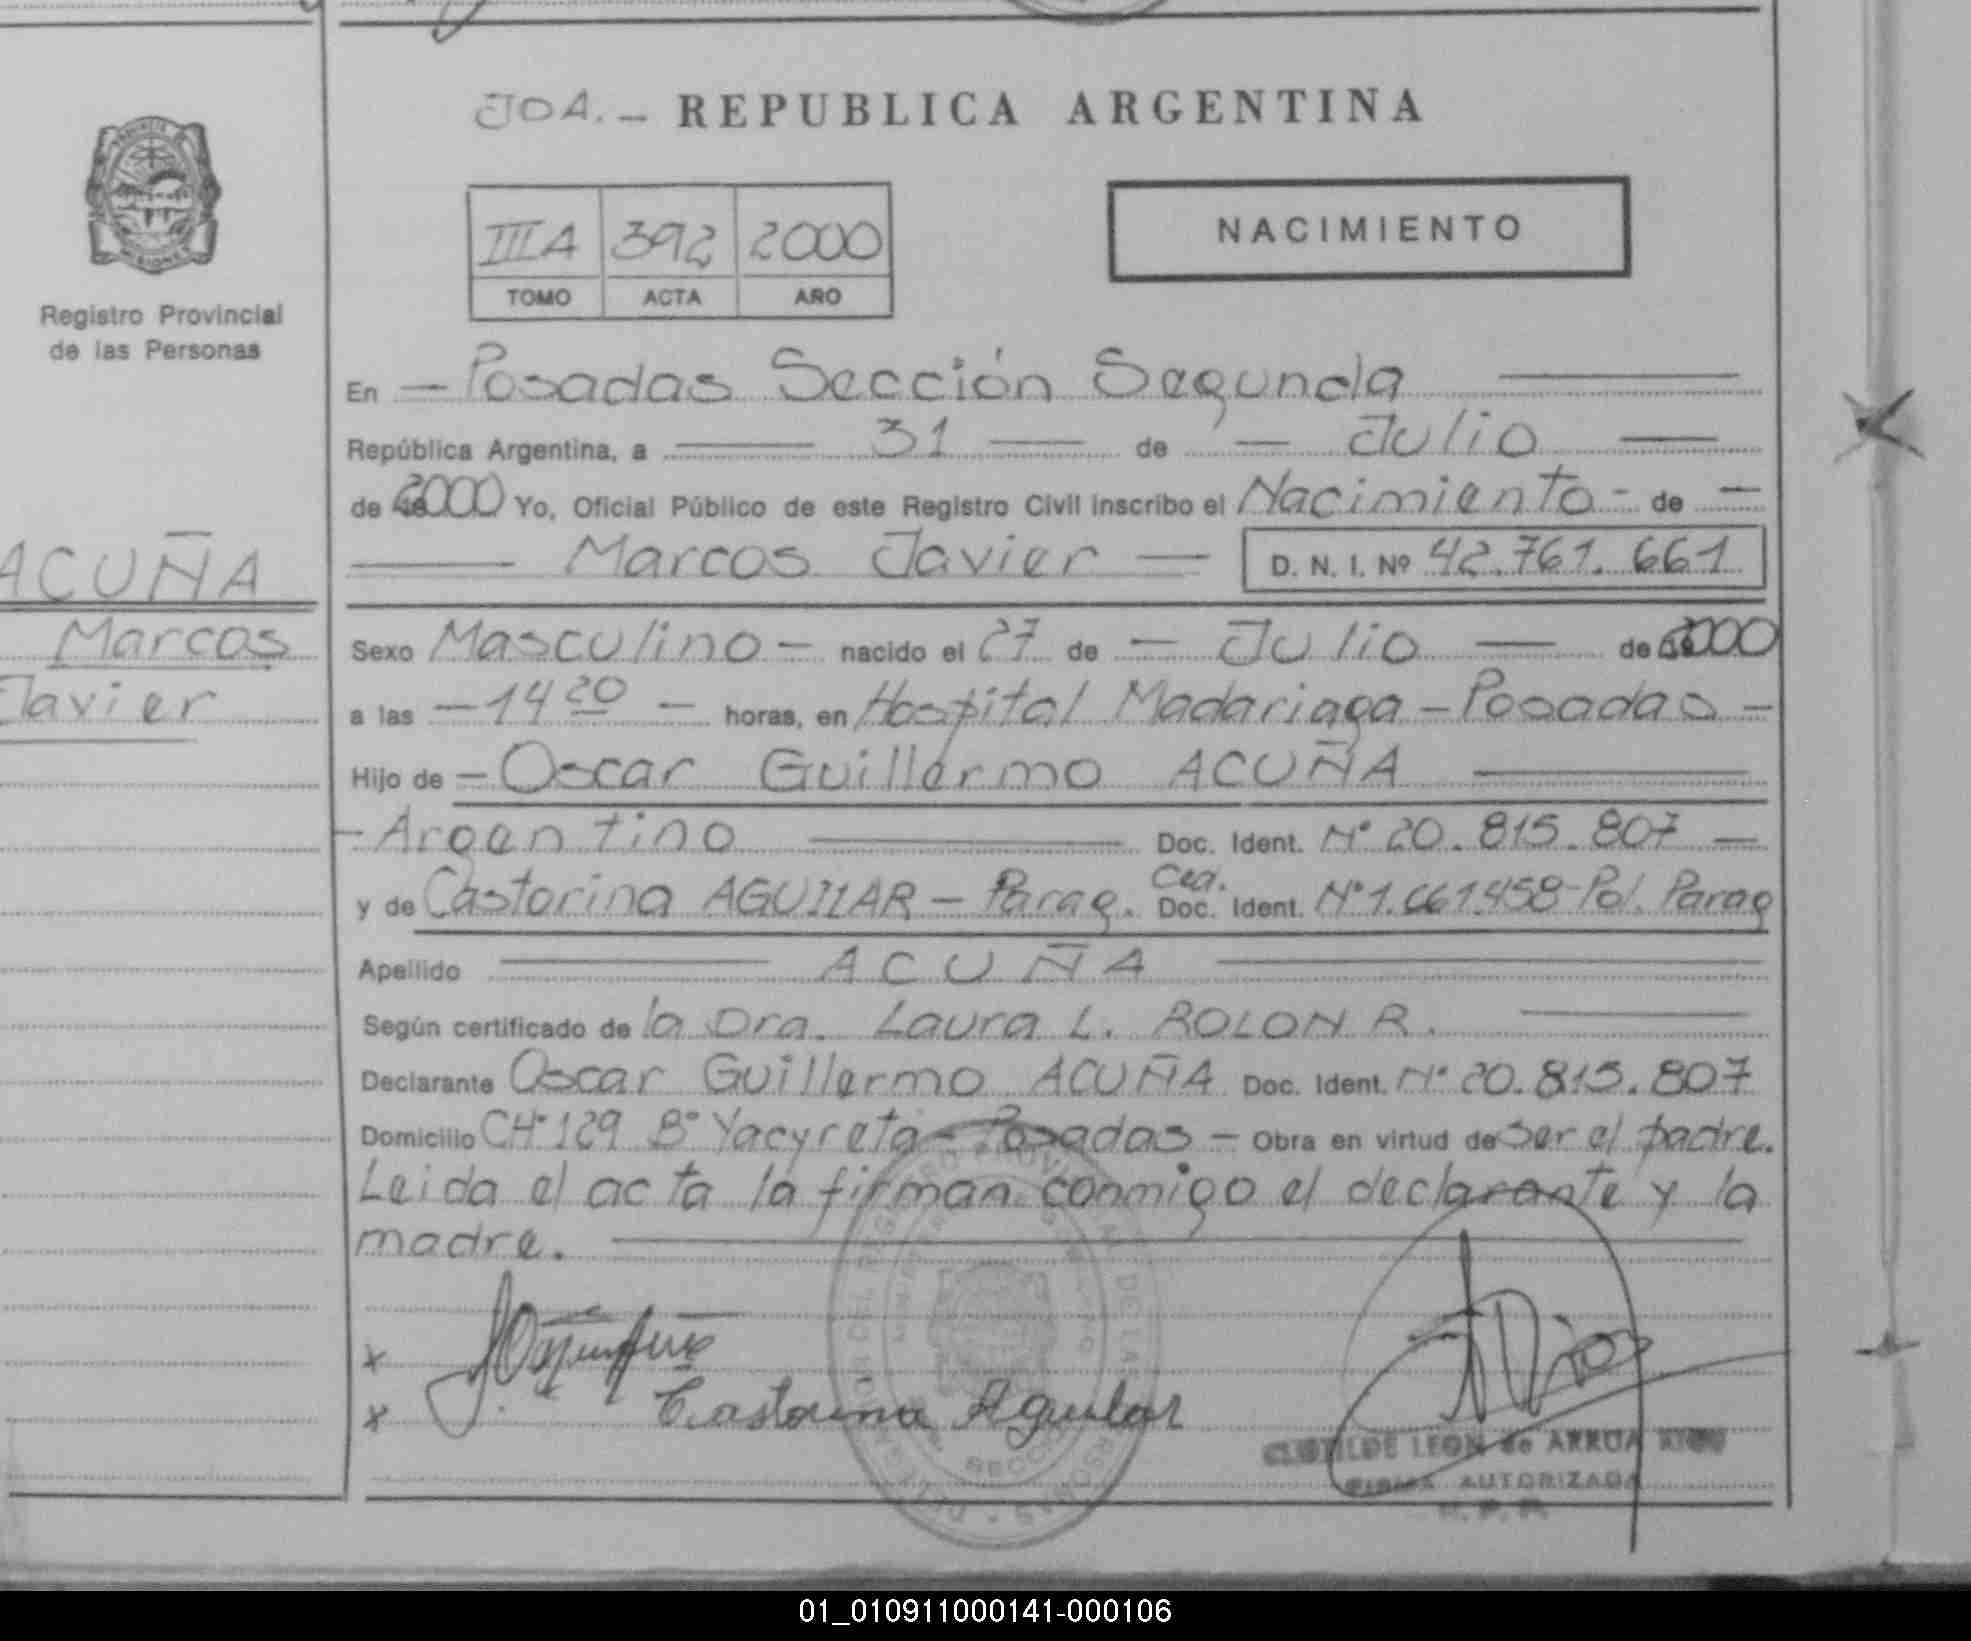 JOA. - REPUBLICA ARGENTINA
IIIA 392 2000
TOMO ACTA AÑO
NACIMIENTO
Registro Provincial
de las Personas
En — Posadas Sección Segunda —
República Argentina, a — 31 — de — Julio —
de 2000 Yo, Oficial Público de este Registro Civil inscribo el Nacimiento - de —
— Marcos Javier — D. N. I. Nº 42.761.661
ACUÑA
Marcos
Javier
Sexo Masculino — nacido el 27 de — Julio — de 2000
a las — 14 20 — horas, en Hospital Madariaga - Posadas -
Hijo de — Oscar Guillermo ACUÑA —
- Argentino — Doc. Ident. Nº 20.815.807 —
y de Castorina AGUILAR - Parag. Ced. Doc. Ident. Nº 1.661.458 - Pol. Parag
Apellido — ACUÑA —
Según certificado de la Dra. Laura L. ROLON R. —
Declarante Oscar Guillermo ACUÑA Doc. Ident. Nº 20.815.807
Domicilio CHº 129 Bº Yacyreta - Posadas - Obra en virtud de ser el padre.
Leida el acta la firman conmigo el declarante y la
madre. —
x
x Castorina Aguilar
CLOTILDE LEON de ARRUA RIOS
FIRMA AUTORIZADA
R. P. P.
01_010911000141-000106